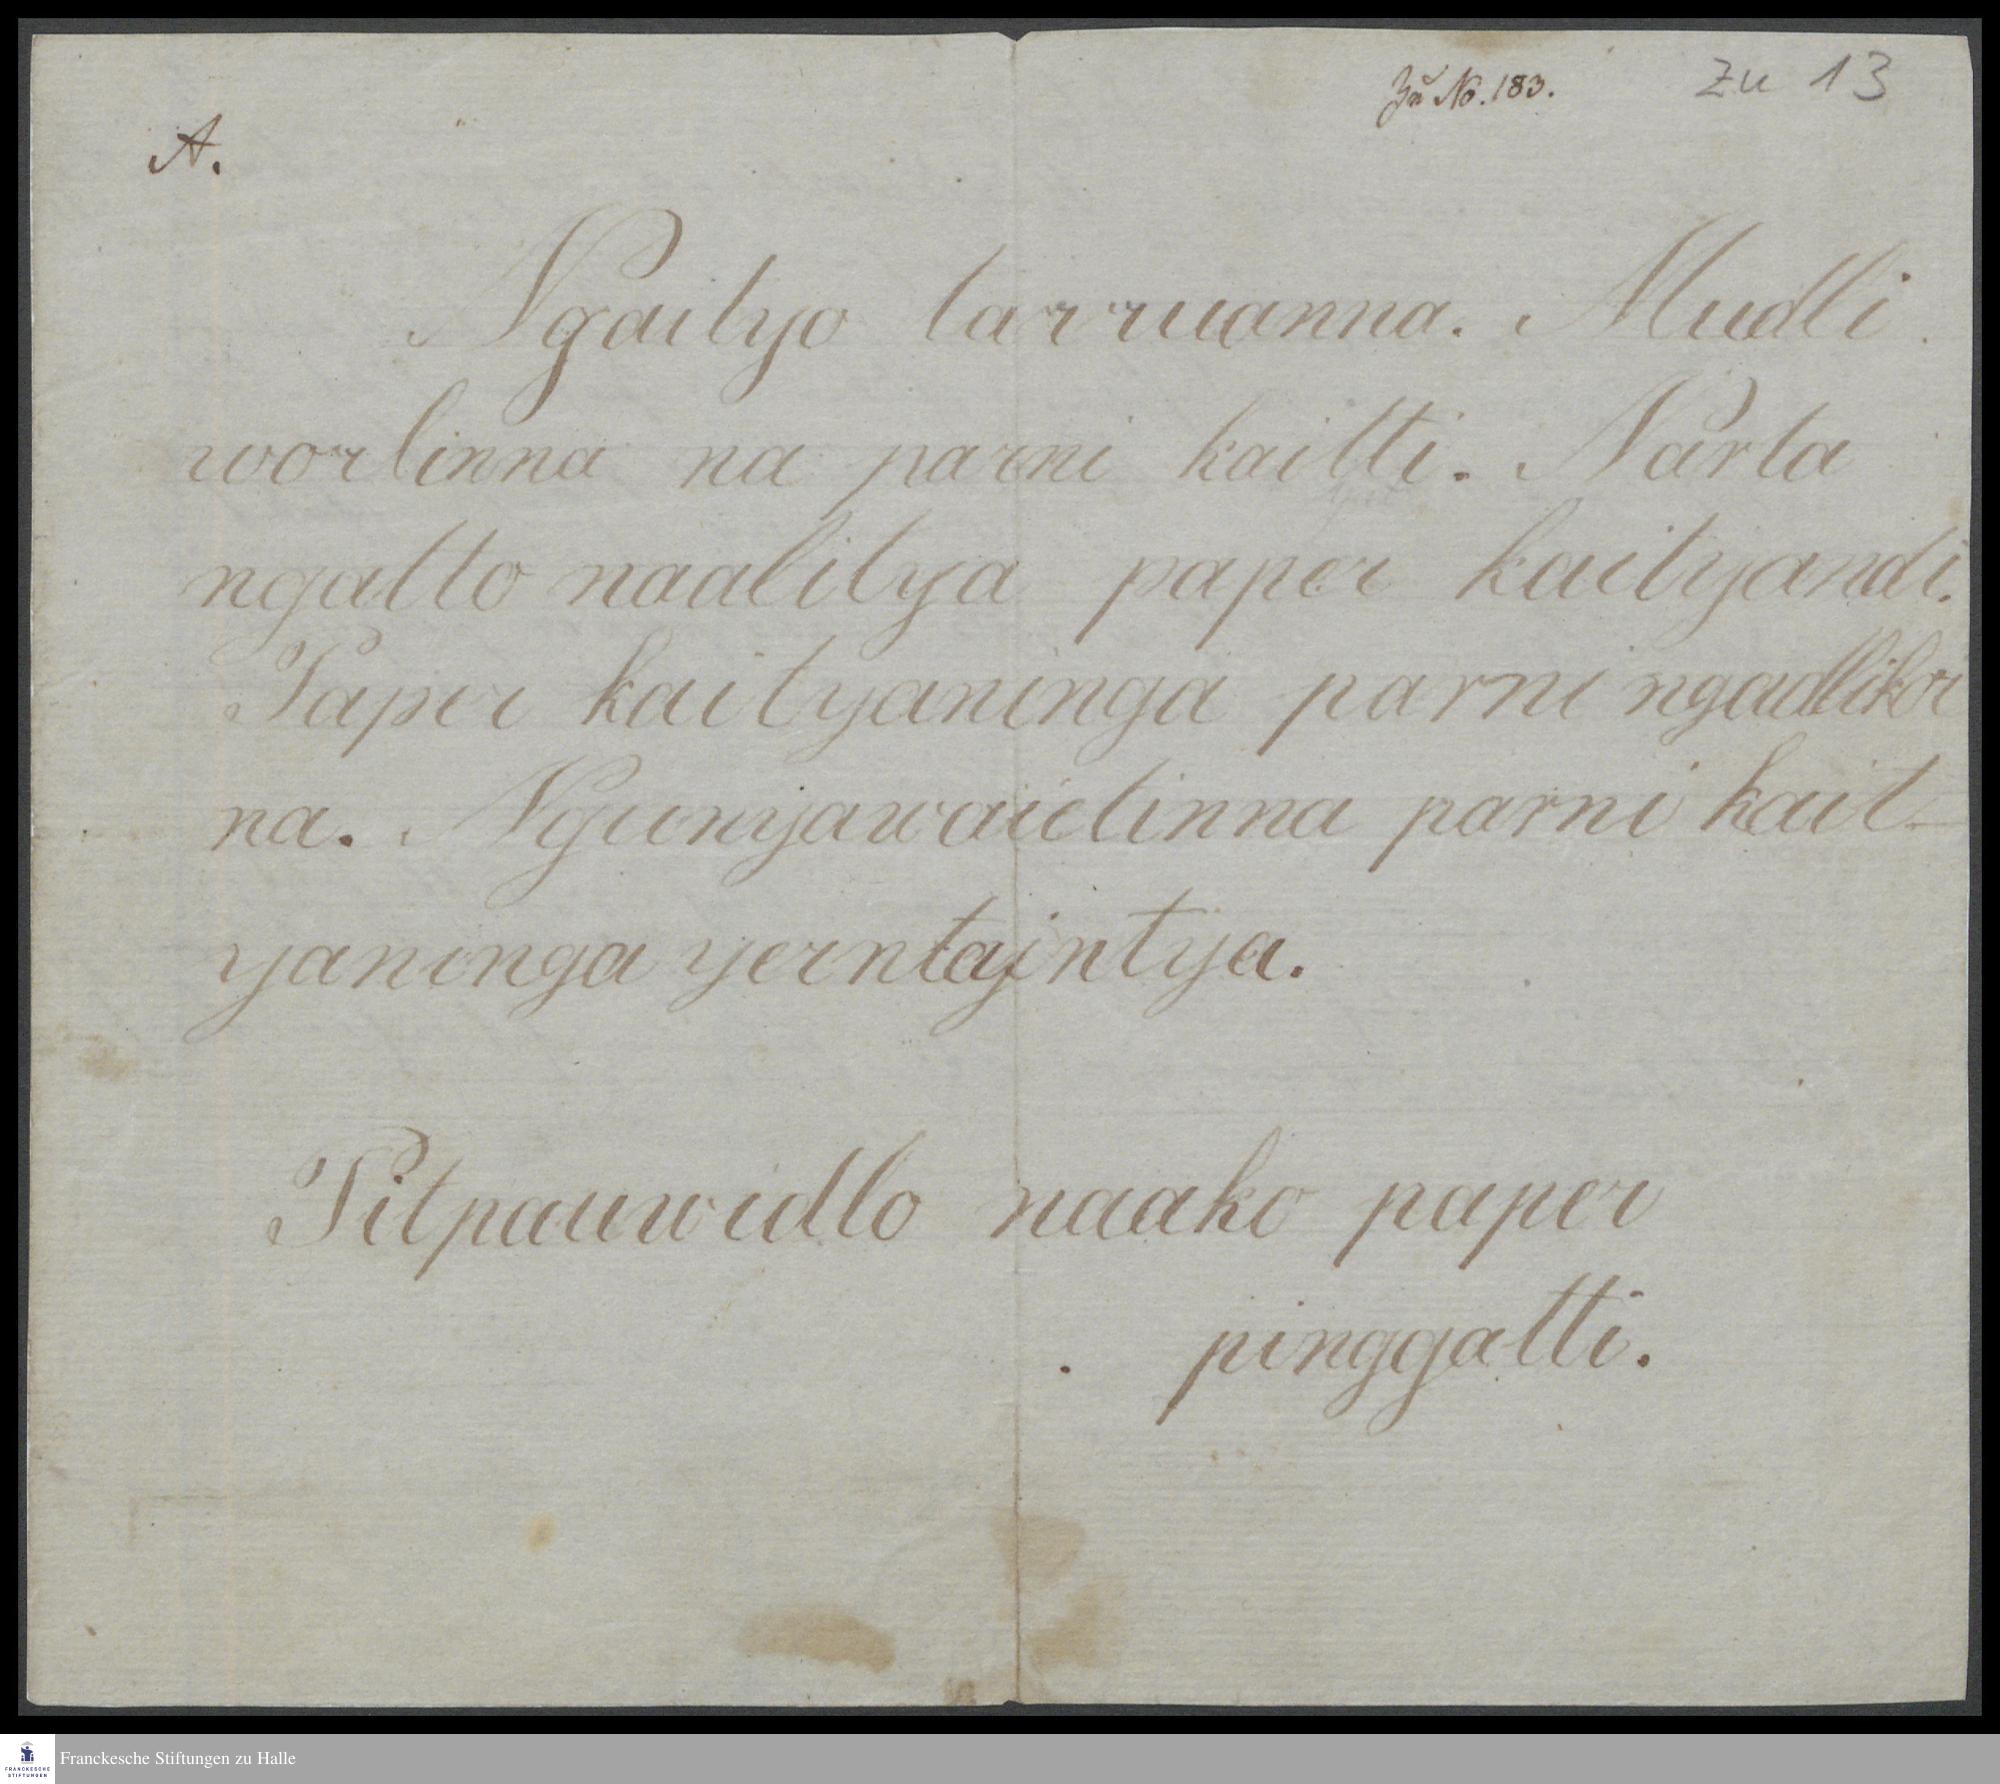 Zu No. 183. zu 13
A.
Ngaityo tarruanna. Mudli
worlinna na parni kaitti. Narta
ngatto naalitya paper kaityandi.
Paper kaityaninga parni ngadlikor
na. Ngunyawaietinna parni kait-
yaninga yerntajntya.
Pitpauwidlo naako paper
pinggatti.
Franckesche Stiftungen zu Halle
FRANCKESCHE
STIFTUNGEN